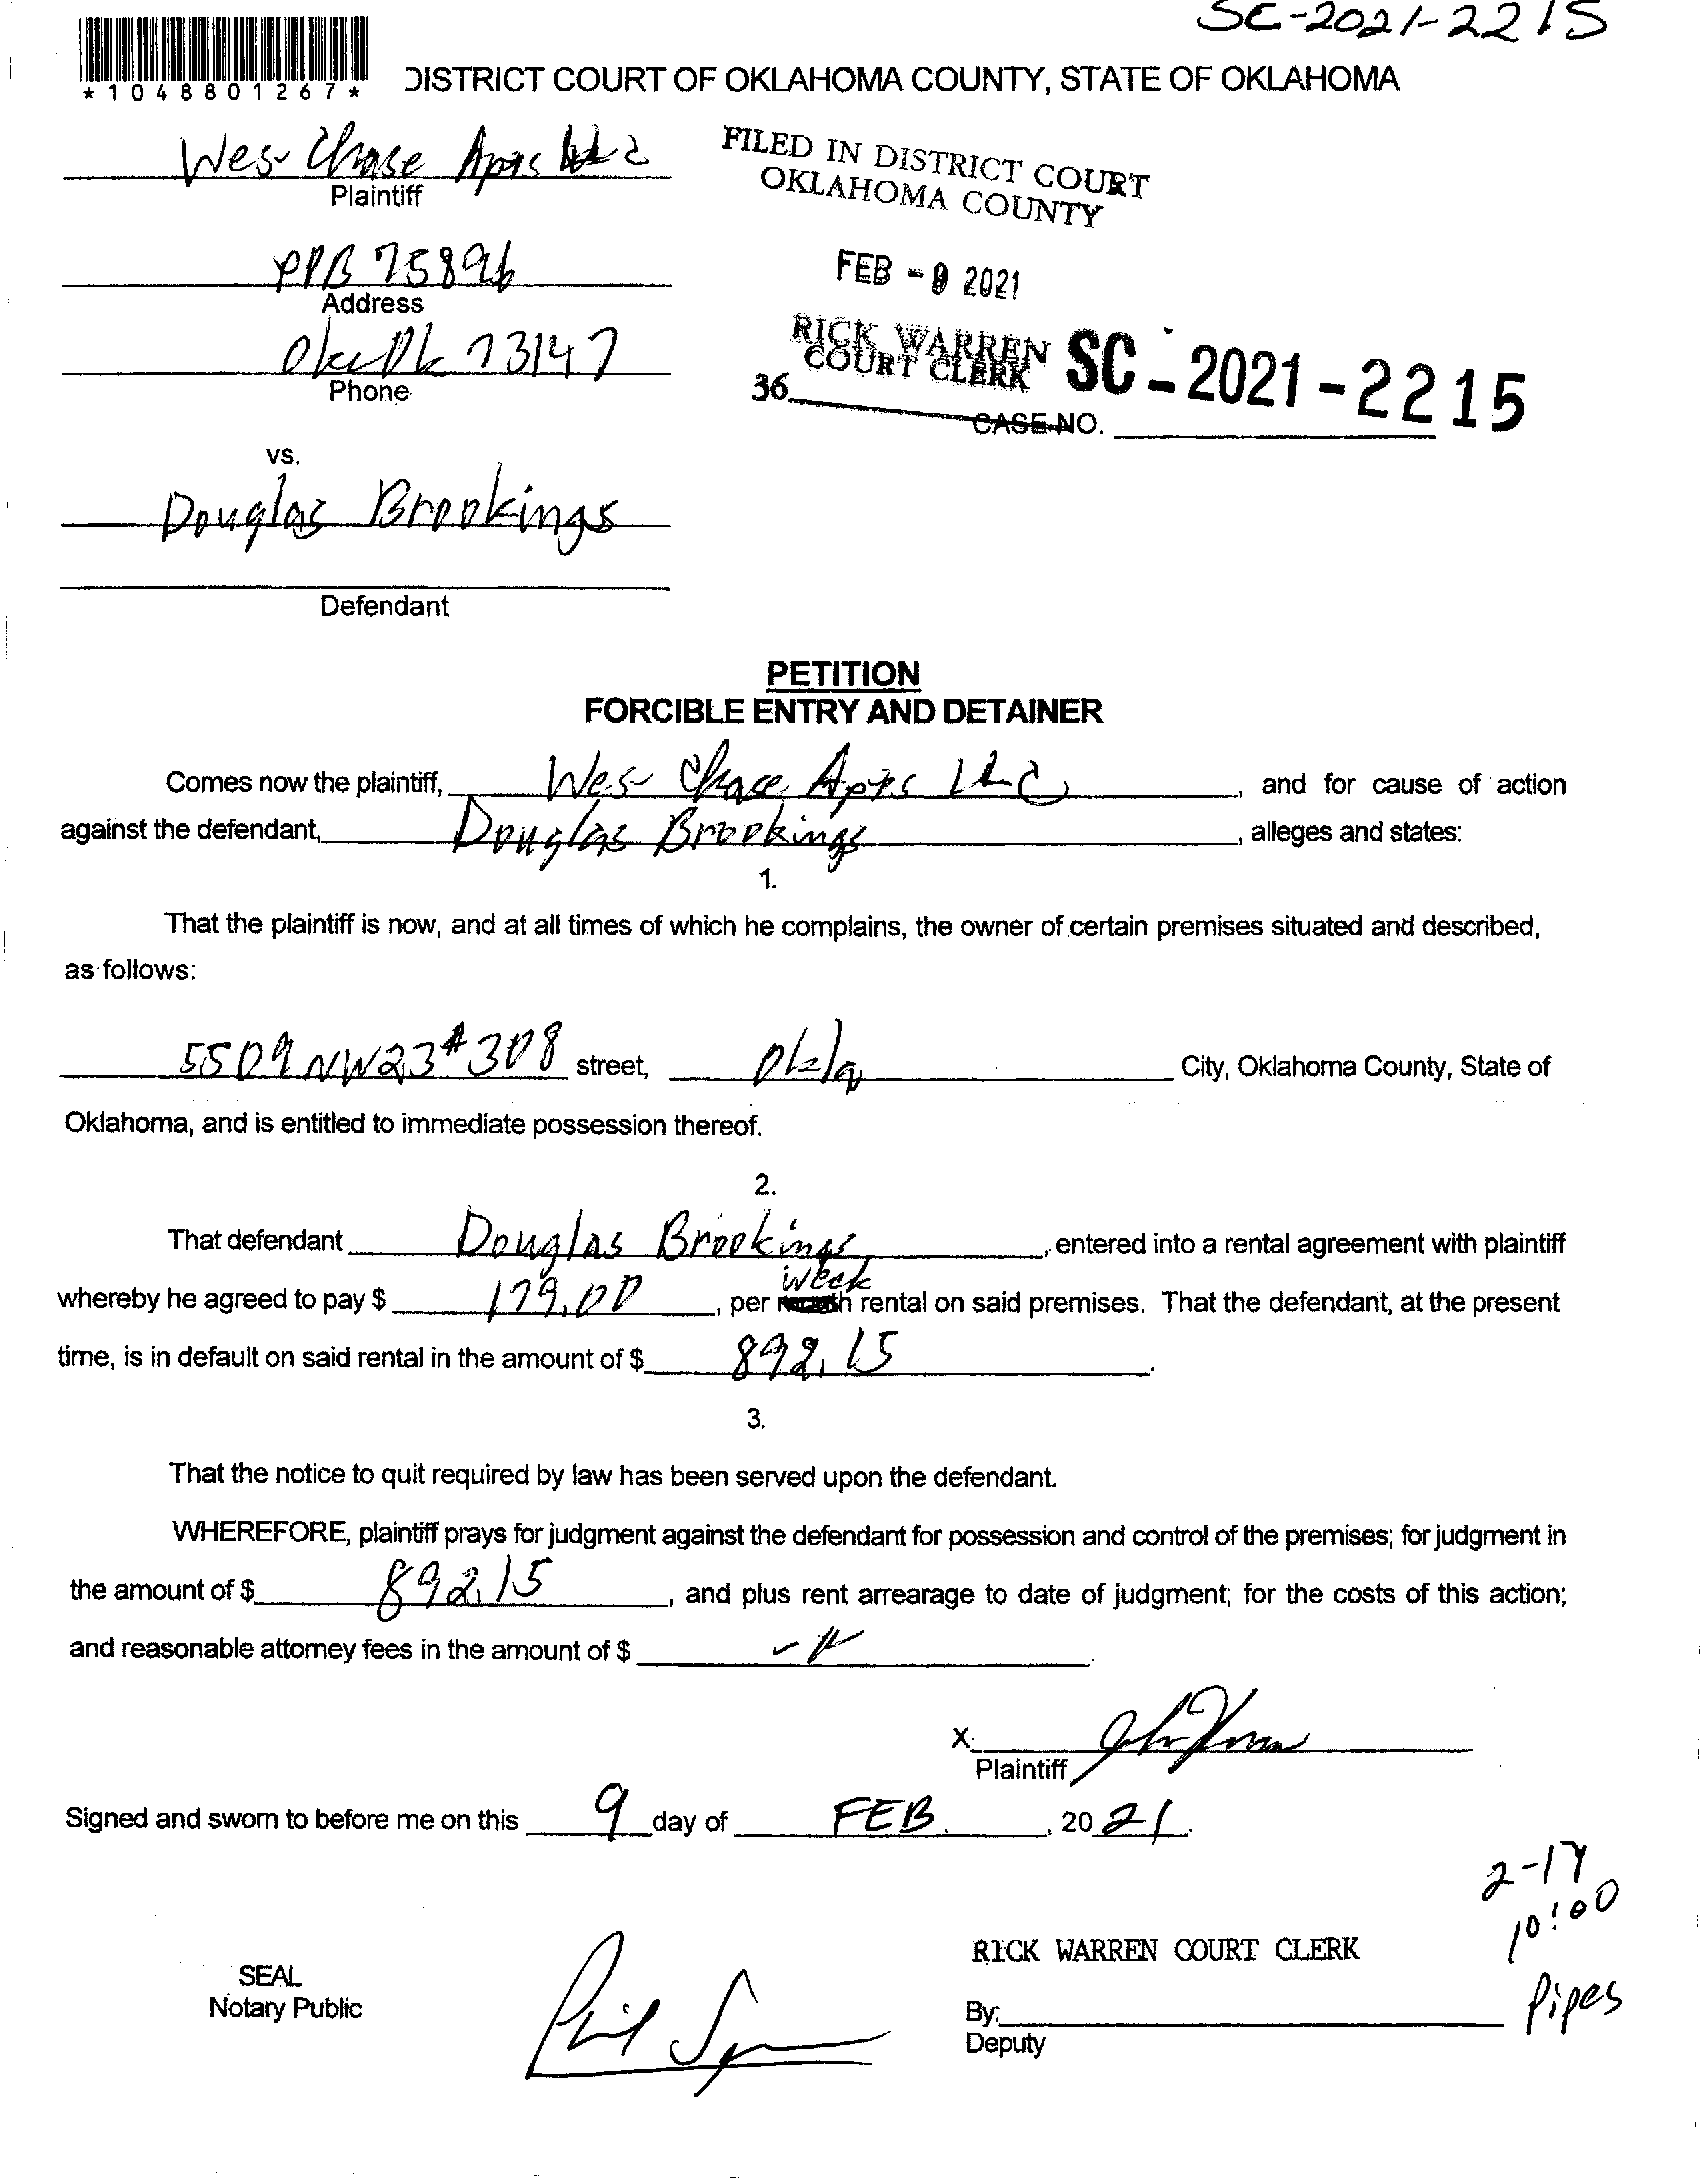 SC-2021-2215
*1048801267*
DISTRICT COURT OF OKLAHOMA COUNTY, STATE OF OKLAHOMA
Wes Chase Apts LLC
Plaintiff
FILED IN DISTRICT COURT
OKLAHOMA COUNTY
POB 75896
Address
FEB -9 2021
Okc Ok 73147
Phone
RICK WARREN
COURT CLERK
36
SC-2021-2215
CASE NO.
vs.
Douglas Brookings
Defendant
PETITION
FORCIBLE ENTRY AND DETAINER
Comes now the plaintiff, Wes Chase Apts LLC, and for cause of action
against the defendant, Douglas Brookings, alleges and states:
1.
That the plaintiff is now, and at all times of which he complains, the owner of certain premises situated and described,
as follows:
5509 NW 23 # 308 street, Okla City, Oklahoma County, State of
Oklahoma, and is entitled to immediate possession thereof.
2.
That defendant Douglas Brookings, entered into a rental agreement with plaintiff
week
whereby he agreed to pay $ 179.00, per month rental on said premises. That the defendant, at the present
time, is in default on said rental in the amount of $ 892.15.
3.
That the notice to quit required by law has been served upon the defendant.
WHEREFORE, plaintiff prays for judgment against the defendant for possession and control of the premises; for judgment in
the amount of $ 892.15, and plus rent arrearage to date of judgment; for the costs of this action;
and reasonable attorney fees in the amount of $
X
Plaintiff
Signed and sworn to before me on this 9 day of FEB., 2021.
2-17
10:00
Pipes
RICK WARREN COURT CLERK
SEAL
Notary Public
By:
Deputy